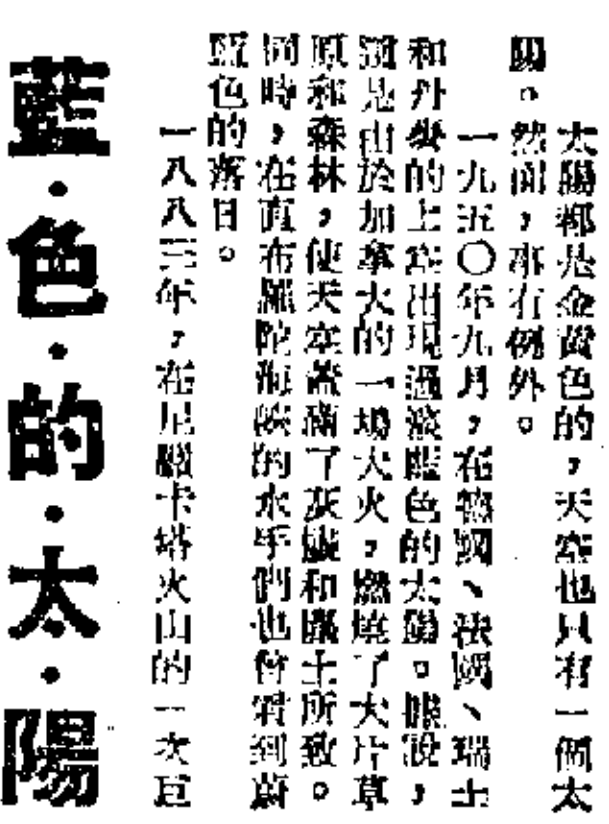 太陽都是金黃色的,天空也只有一個太
陽。然而,事有例外。
一九五〇年九月,在德國、法國、瑞士
和丹麥的上空出現過淡藍色的太陽。據說,
是由於加拿大的一場大火,燃燒了大片草
原和森林,使天空蓋滿了灰燼和土所致。
同時,在直布羅陀海峽的水手們也曾看到蔚
藍色的落日。
一八八三年,在尼卡塔火山的一次巨
藍·色·的·太·陽